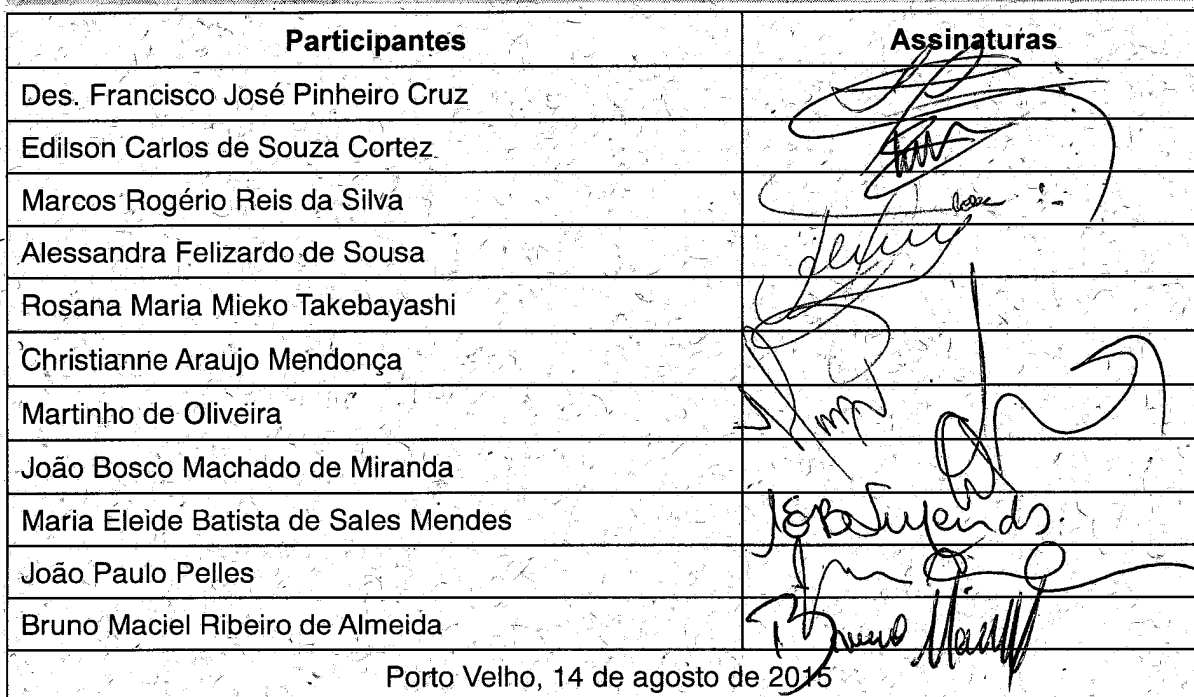 Participantes Assinaturas
Des. Francisco José Pinheiro Cruz
Edilson Carlos de Souza Cortez
Marcos Rogério Reis da Silva
Alessandra Felizardo de Sousa
Rosana Maria Mieko Takebayashi
Christianne Araujo Mendonça
Martinho de Oliveira
João Bosco Machado de Miranda
Maria Eleide Batista de Sales Mendes
João Paulo Pelles
Bruno Maciel Ribeiro de Almeida Bruno Maciel
Porto Velho, 14 de agosto de 2015